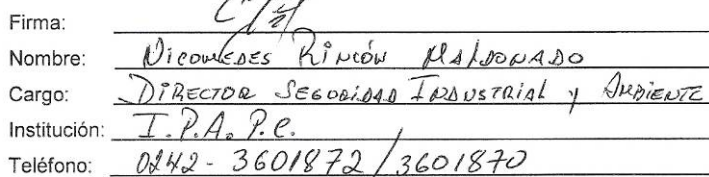 Firma:
Nombre: Nicomedes Rincón Maldonado
Cargo: Director Seguridad Industrial y Ambiente
Institución: I.P.A.P.C.
Teléfono: 0242-3601872/3601870